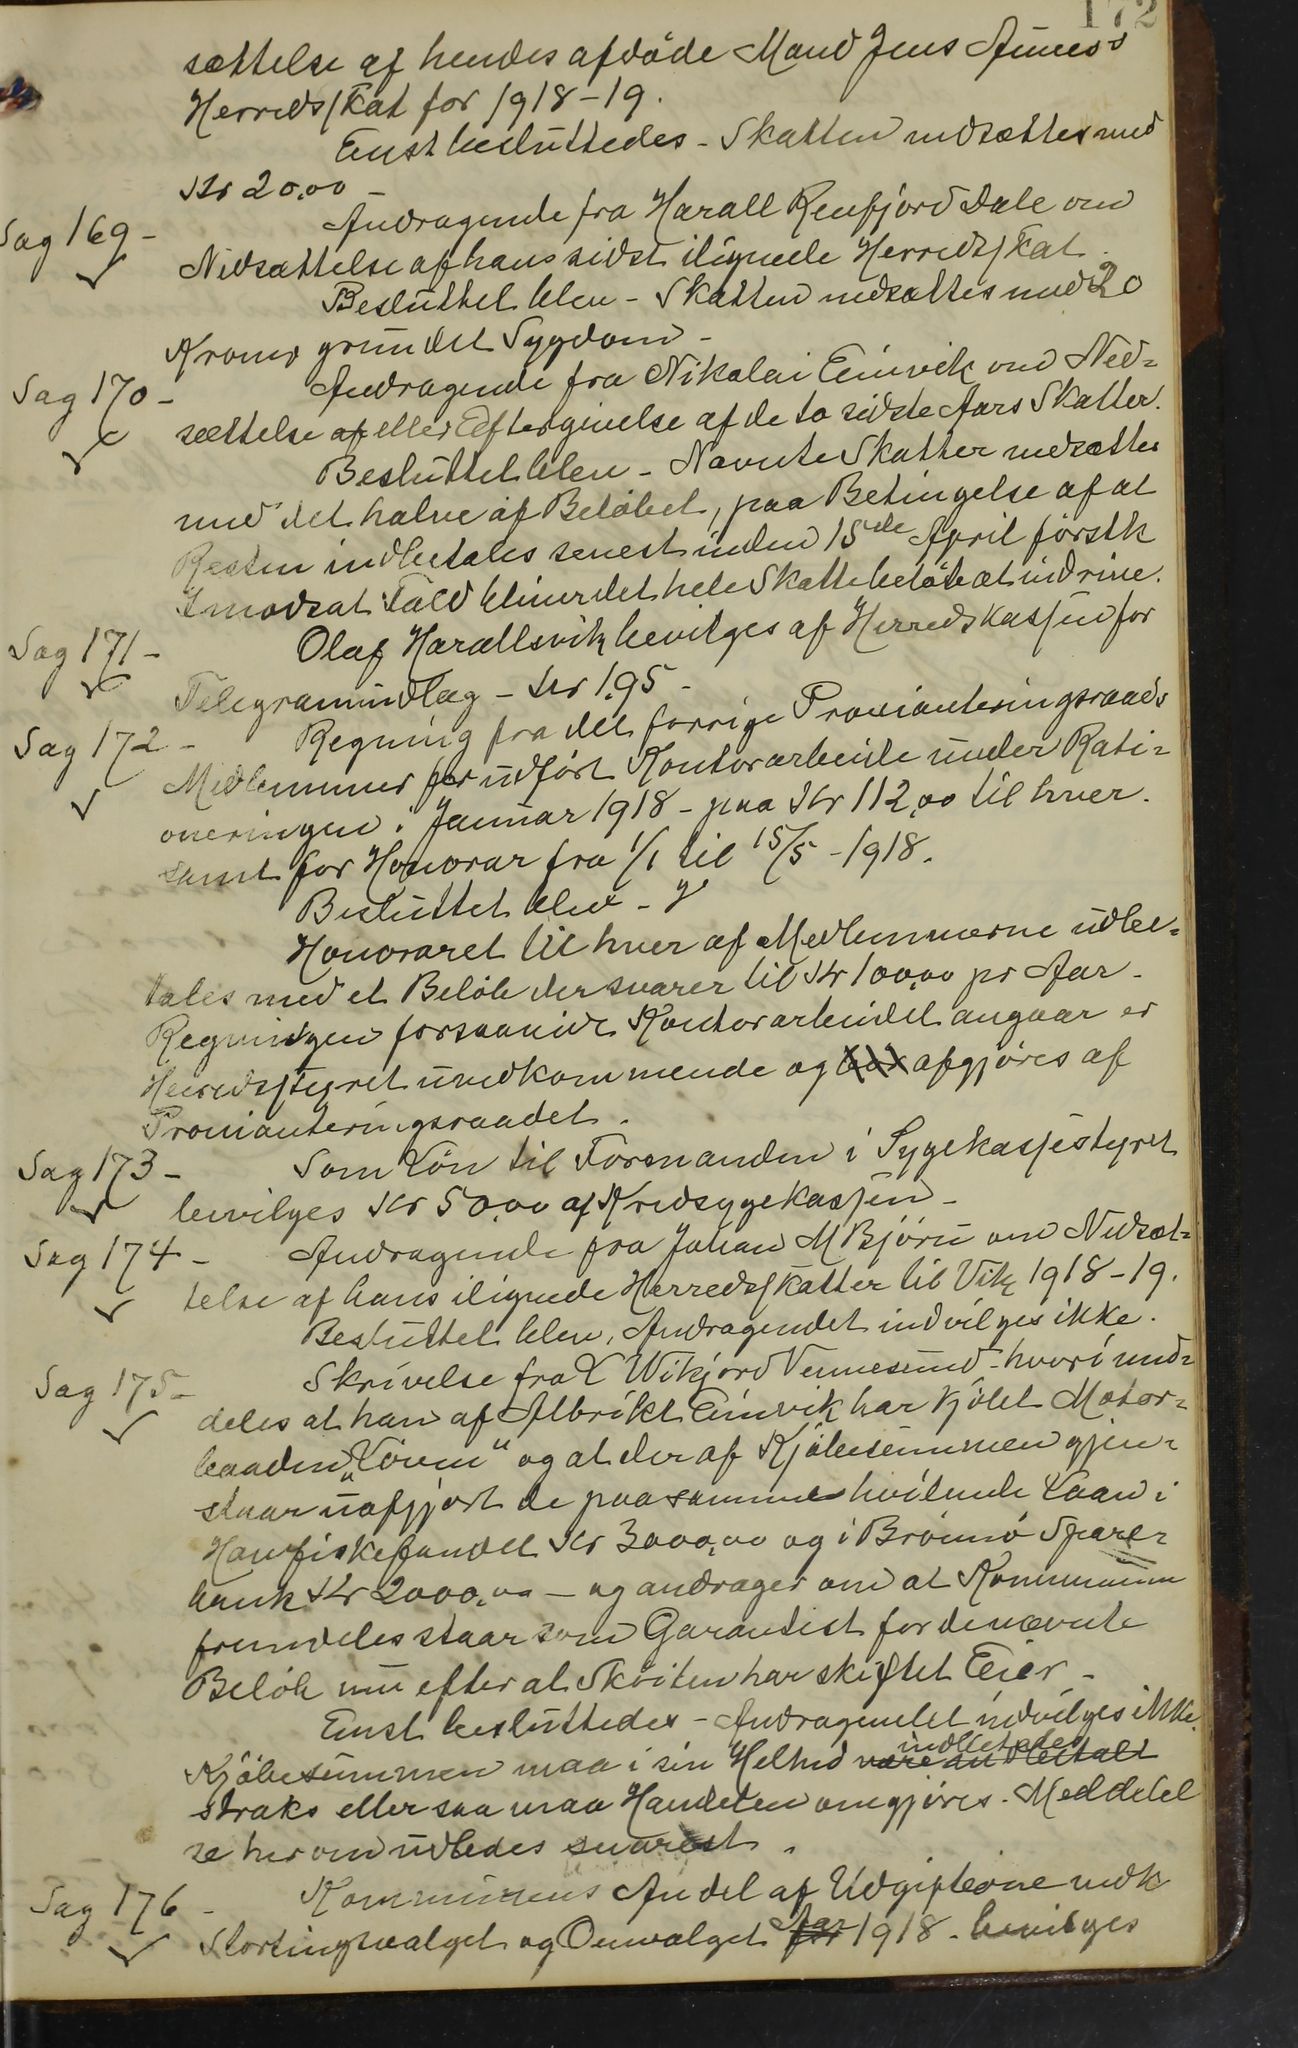 172
sættelse af hendes afdøde Mand Jens Aunes's
Herredsskat for 1918-19.
Enst besluttedes - Skatten nedsættes med
Kr 20.00 -
Sag 169 - Andragende fra Harall Renfjord Dale om
Nedsættelse af hans sidst ilignede Herredsskat.
Besluttet blev - Skatten nedsættes med 20
Kroner grundet Sygdom -
Sag 170 - Andragende fra Nikolai Eimvik om Ned=
sættelse af eller Eftergivelse af de to sidste Aars Skatter.
Besluttet blev - Nævnte Skatter nedsættes
med det halve af Beløbet, paa Betingelse af at
Resten indbetales senest inden 15de April førstk
I modsat Fald bliver det hele Skattebeløb at inddrive.
Sag 171 - Olaf Harallsvik bevilges af Herredskassen for
Telegramudlæg - Kr 1.95 -
Sag 172 - Regning fra det forrige Provianteringsraads
Medlemmer for udført Kontorarbeide under Rati=
oneringen i Januar 1918 - paa Kr 112,00 til hver.
samt for Honorar fra 1/1 til 15/5 - 1918.
Besluttet blev -
Honoraret til hver af Medlemmerne udbe=
tales med et Beløb der svarer til Kr 100,00 pr Aar -
Regningen forsaavidt Kontorarbeidet angaar er
Herredsstyret uvedkommende og afgjøres af
Provianteringsraadet.
Sag 173 - Som Løn til Formanden i Sygekassestyret
bevilges Kr 50,00 af Kredssygekassen -
Sag 174 - Andragende fra Johan M Bjørü om Nedsæt=
telse af hans ilignede Herredsskatter til Vik 1918-19.
Besluttet blev, Andragendet indvilges ikke.
Sag 175 - Skrivelse fra L Wikjord Vennesund - hvori med=
deles at han af Albrikt Eimvik har kjøbt Motor=
baaden "Løven" og at der af Kjøbesummen gjen=
staar uafgjort de paa samme hvilende Laan i
Havfiskefondet Kr 3000,00 og i Brønnø Spare=
bank Kr 2000,00 - og andrager om at Kommunen
fremdeles staar som Garantist for de nævnte
Beløb nu efter at Skøiten har skiftet Eier -
Enst besluttedes - Andragendet indvilges ikke.
Kjøbesummen maa i sin Helhed være indbetalt indbetales
straks eller saa maa Handelen omgjøres. Meddelel
se herom udbedes snarest.
Sag 176 - Kommunens Andel af Udgifterne vedk
Stortingsvalget og Omvalget for 1918 - bevilges